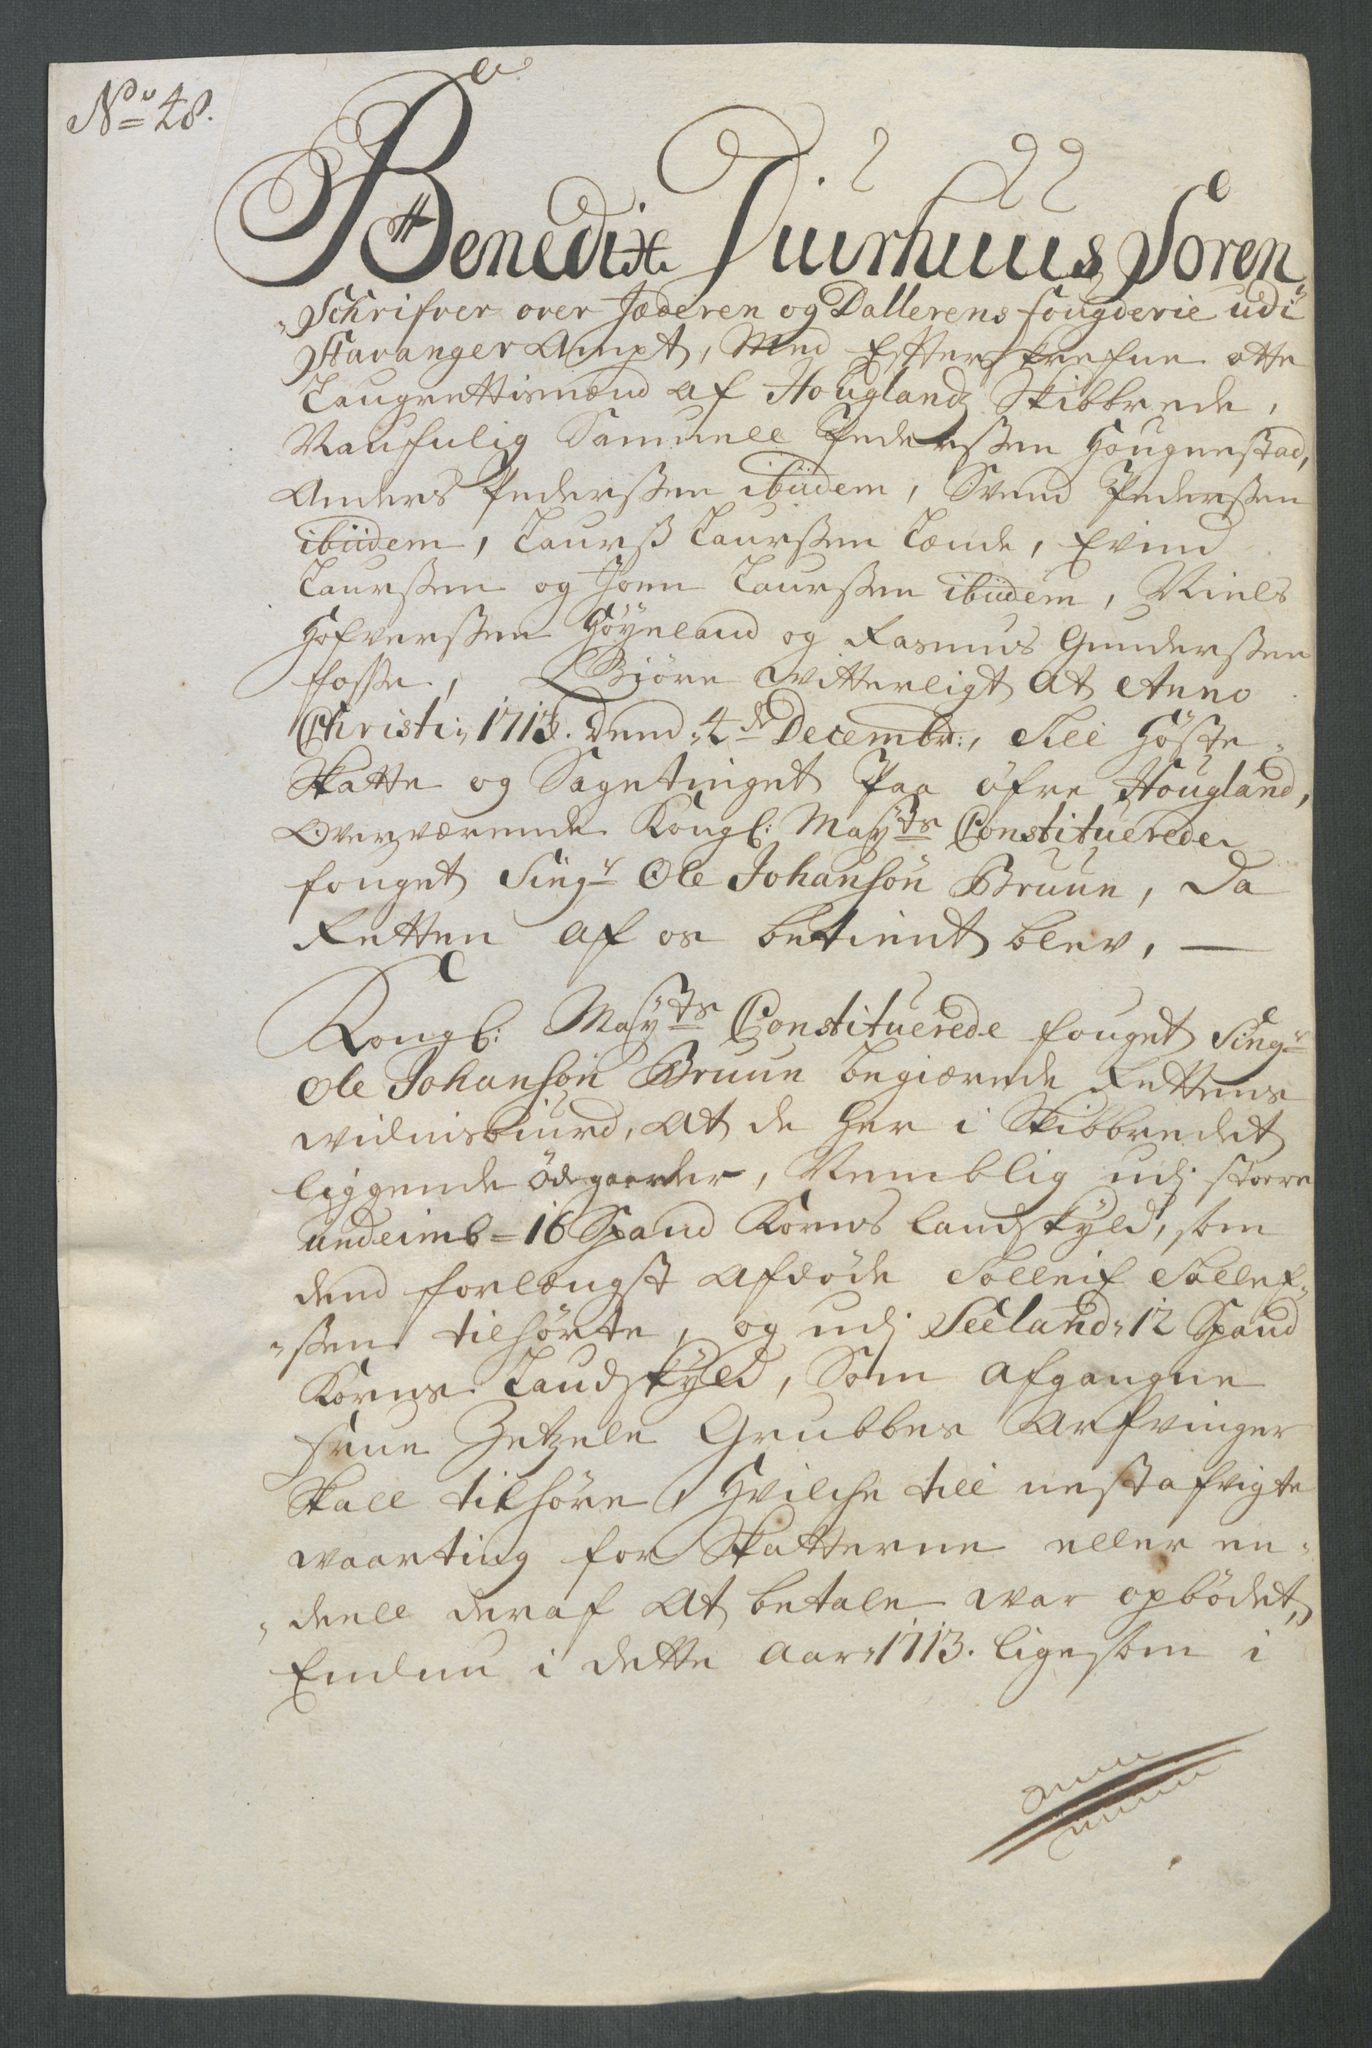 No 48.
Benedix Diurhuus Soren
Schrifver over Jæderen og Dallerens fougderie udi
Stavanger Ampt, Med Efterskrefne otte
Laugrettismænd af Hougland Skibbrede,
Naufnlig Samuell Pederssen Hougnestad,
Anders Pederssen ibiidem, Svend Pederssen
ibiidem, Laurs Laurssen Lænde, Evind
Laurssen og Joen Laurssen ibiidem, Niels
Hofverssen Høyeland og Rasmus Gunderssen
fosse, Giøre Witterligt At Anno
Christi 1713. Dend 4de Decembr:, Till Høste
Skatte og Sagetinget Paa Øfre Hougland,
Overværende Kongl: Mayts Constituerede
fouget Singr Ole Johansøn Bruun, Da
Retten af os betient blev,
Kongl: Mayts Constituerede fouget Singr
Ole Johansøn Bruun begiærede Rettens
Widnisbiurd, At de her i Skibbredet
liggende Ødegaarder, Nemblig udj Storre
undeimb 16 Spand Korns Landskyld, som
dend forlængst Afdøde Tolleif Tollef
ssen tilhørte, og udj Seeland 12 Spand
Korns Landskyld, Som Afgangne
frue Zetzele Grubbes Arfvinger
skall tilhøre, Hvilche till nestafvigte
Waarting for Skatterne eller en
deell deraf At betale war opbødet,
Endnu i dette Aar 1713. ligesom i